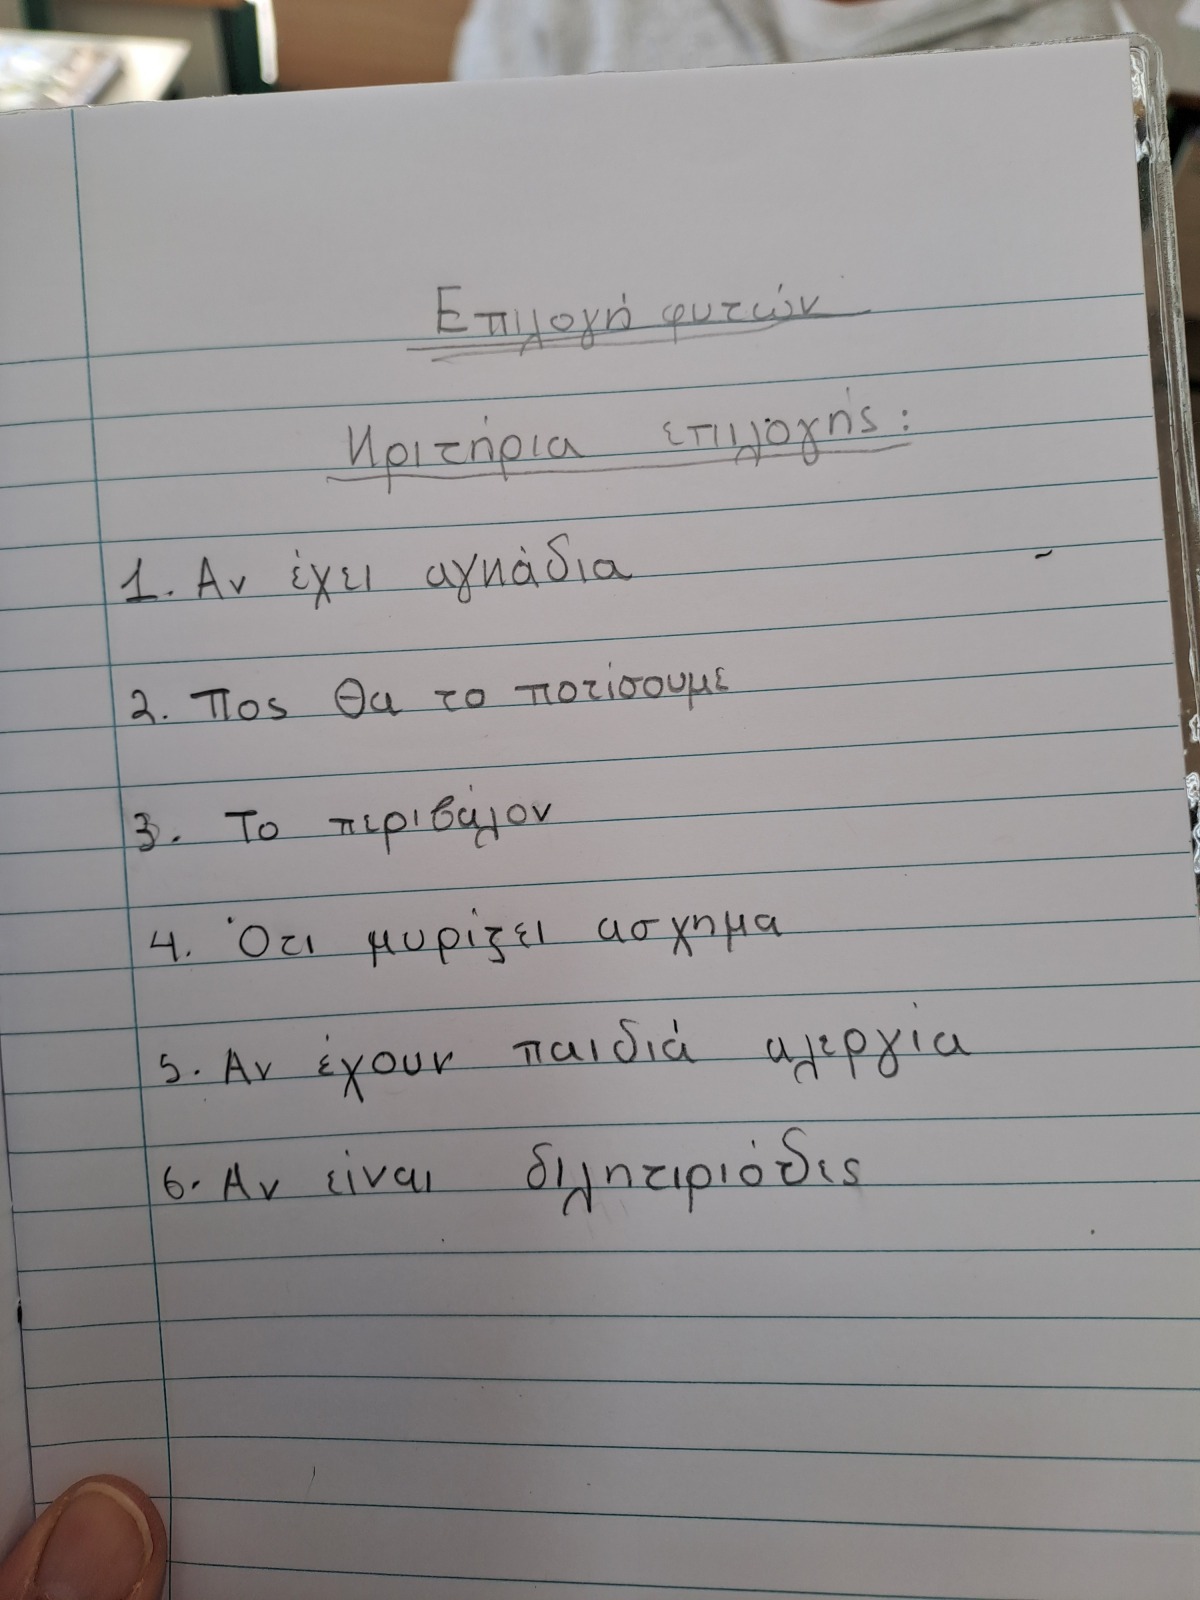 Επιλογή φυτών
Κριτήρια επιλογής:
1. Αν έχει αγκάδια
2. Πος θα το ποτίσουμε
3. Το περιβάλον
4. Ότι μυρίζει ασχημα
5. Αν έχουν παιδιά αλεργία
6. Αν είναι διλητιριόδες